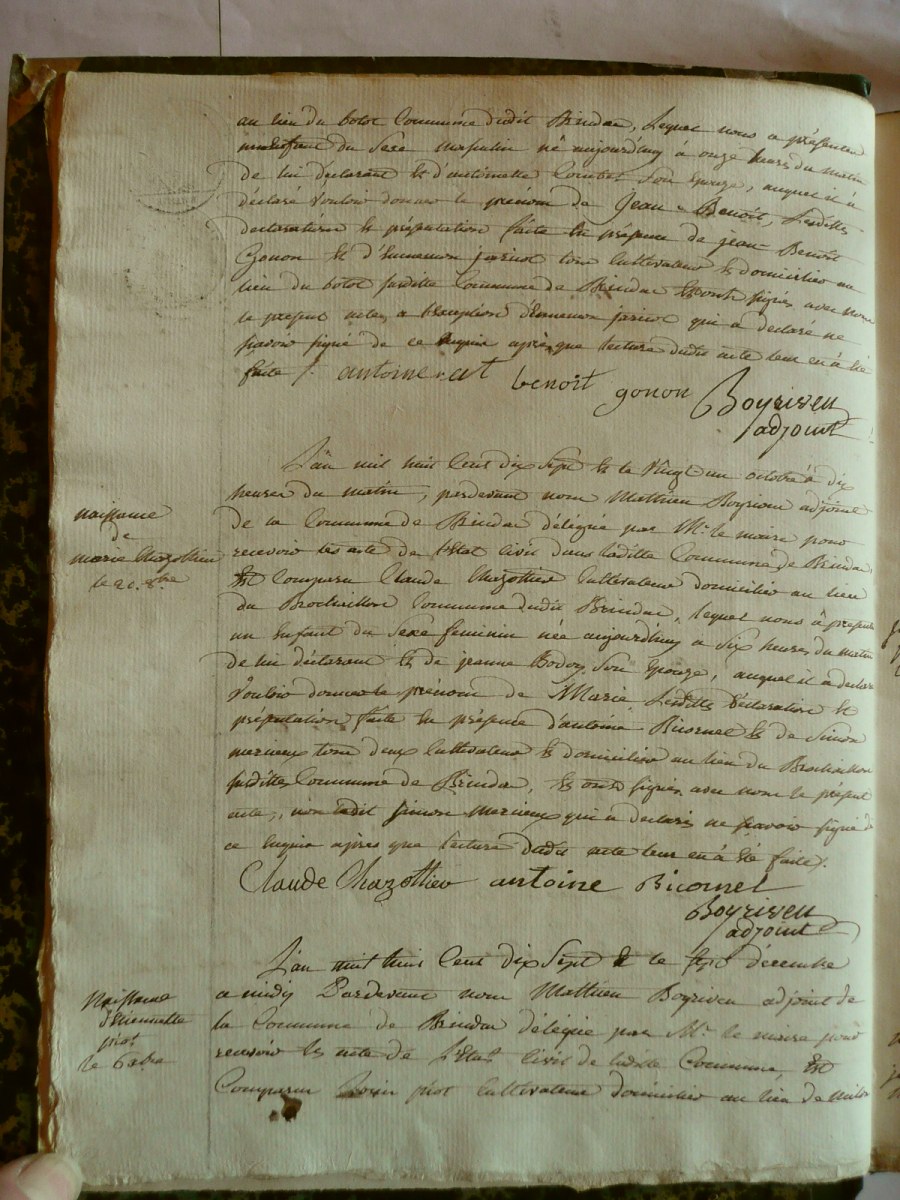 au lieu du botot Commune dudit Brindas, Lequel nous a présenté
un Enfant du Sexe masculin né aujourd'huy à onze heures du matin
de lui déclarant Et d'antoinette Combet Son Epouze, auquel il a
déclaré Vouloir donner le prénom de Jean-Benoît, Lesdittes
déclaration Et présentation faite En présence de jean-Benoit
Gonon Et d'Ennemon jaricot tous Cultivateurs Et domiciliés au
lieu du botot susditte Commune de Brindas Et ont signés avec nous
le présent acte, a l'exception d'Ennemon jaricot qui a déclaré ne
savoir signé de ce Enquis après que lecture dudit acte leur en à Eté
faite /. antoine
benoit gonon Boyriven
adjoint
L'an mil huit Cent dix Sept Et le Vingt un octobre à dix
heures du matin, pardevant nous Matthieu Boyriven adjoint
de la Commune de Brindas délégué par Mr. le maire pour
recevoir les acte de l'Etat Civil dans laditte Commune de Brindas
Est Comparu Claude Chazottier Cultivateur domicilié au lieu
du Brochaillon Commune dudit Brindas, lequel nous à présenté
un Enfant du Sexe feminin née aujourd'huy a Six heures du matin
de lui déclarant Et de jeanne Bodoy Son Epouze, auquel il a déclaré
Vouloir donner le prénom de Marie, Lesdittes déclaration Et
présentation faite En présence d'antoine Bicornet Et de Simon
merieux tous deux Cultivateurs Et domiciliés au lieu du Brochaillon
susdittes Commune de Brindas, Et ont signés avec nous le présent
acte, non ledit Simon Merieux qui a déclaré ne savoir signé de
ce Enquis après que lecture dudit acte leur en à Eté faite /.
Naissance
de
marie Chazottier
le 20. 8.bre
Claude Chazottier antoine Bicornet
Boyriven
adjoint
L'an mil huit Cent dix Sept Et le Sept décembre
a midy Pardevant nous Matthieu Boyriven adjoint de
la Commune de Brindas délégué par Mr. le maire pour
recevoir les acte de l'Etat Civil de laditte Commune, Est
Comparu piot Cultivateur domicilié au lieu de
Naissance
d'Etiennette
piot
le 6 xbre